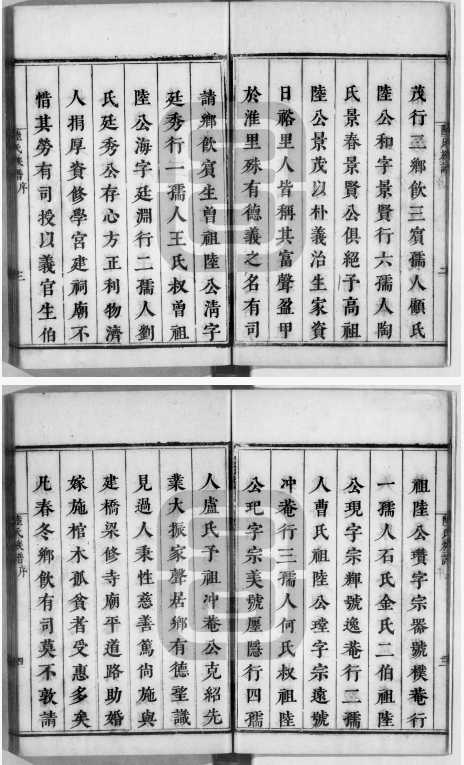 茂行三鄉飲三賓孺人顧氏
陸公和字景賢行六孺人陶
氏景春景賢公俱絕予高祖
陸公景茂以朴義治生家資
日裕里人皆稱其富聲盈甲
於淮里殊有德義之名有司
請鄉飲賓生曾祖陸公清字
廷秀行一孺人王氏叔曾祖
陸公海字廷淵行二孺人劉
氏廷秀公存心方正利物濟
人捐厚資修學宮建祠廟不
惜其勞有司授以義官生伯
陸氏族譜序
三
祖陸公瓚字宗器號樸菴行
一孺人石氏金氏二伯祖陸
公現字宗輝號逸菴行二孺
人曹氏祖陸公瑝字宗遠號
冲菴行三孺人何氏叔祖陸
公玘字宗美號隱行四孺
人盧氏予祖冲菴公克紹先
業大振家聲居鄉有德望識
見過人秉性慈善篤尚施與
建橋梁修寺廟平道路助婚
嫁施棺木孤貧者受惠多矣
凡春冬鄉飲有司莫不敦請
陸氏族譜序
四